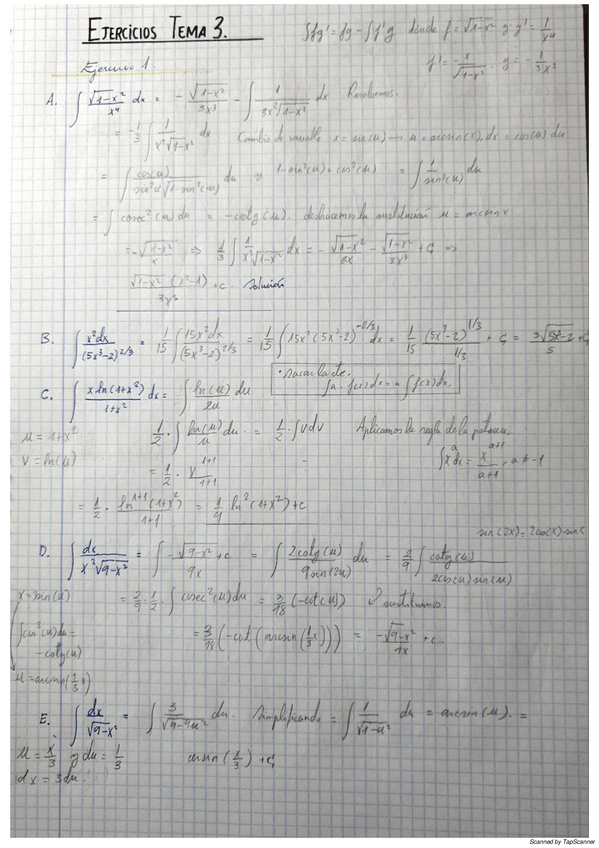 EJERCICIOS TEMA 3.
∫fg' = fg - ∫f'g dónde f = √1-x² y g' = 1/x⁴
f' = -x/√1-x² . g = -1/3x³
Ejercicio 1
A. ∫ √1-x²/x⁴ dx = -√1-x²/3x³ - ∫ 1/3x²√1-x² dx Resolvemos.
= -1/3 ∫ 1/x²√1-x² dx Cambio de variable x = sin(u) → u = arcsin(x), dx = cos(u) du
= ∫ cos(u)/sin²(u)√1-sin²(u) du y 1-sin²(u) = cos²(u) = ∫ 1/sin²(u) du
= ∫ cosec²(u) du = -cotg(u). deshacemos la sustitución u = arcsin x
= -√1-x²/x ⇒ 1/3 ∫ 1/x²√1-x² dx = -√1-x²/3x - √1-x²/3x³ + C ⇒
√1-x² (x²-1)/3x³ + c. solución
B. ∫ x²dx/(5x³-2)^2/3 = 1/15 ∫ 15x²dx/(5x³-2)^2/3 = 1/15 ∫ 15x² (5x³-2)^-2/3 dx = 1/15 (5x³-2)^1/3/1/3 + C = 3√5x³-2/5 + C
• sacar la cte.
∫a · f(x)dx = a ∫f(x)dx.
C. ∫ x ln(1+x²)/1+x² dx = ∫ ln(u)/2u du
u = 1+x² 1/2 · ∫ ln(u)/u du = 1/2 · ∫vdv Aplicamos la regla de la potencia
v = ln(u) = 1/2 · v^1+1/1+1 ∫x^a dx = x^a+1/a+1, a ≠ -1
= 1/2 · ln^1+1(1+x²)/1+1 = 1/4 ln²(1+x²)+c
sin(2x) = 2cos(x)·sin(
D. ∫ dx/x²√9-x² = ∫ -√9-x²/9x + c = ∫ 2cotg(u)/9sin(2u) du = 2/9 ∫ cotg(u)/2cos(u)sin(u)
x = sin(u) = 2/9 · 1/2 · ∫ cosec²(u)du = 3/18 (-cot(u)) sustituimos.
∫csc²(u)du = -cotg(u) = 3/18 (-cot(arcsin(1/3 x))) = -√9-x²/9x + c
u = arcsin(1/3 x)
E. ∫ dx/√9-x² = ∫ 3/√9-9u² du. Simplificando = ∫ 1/√1-u² du = arcsin(u). =
u = x/3 y du = 1/3 arcsin(1/3) + C
dx = 3du.
Scanned by TapScanner